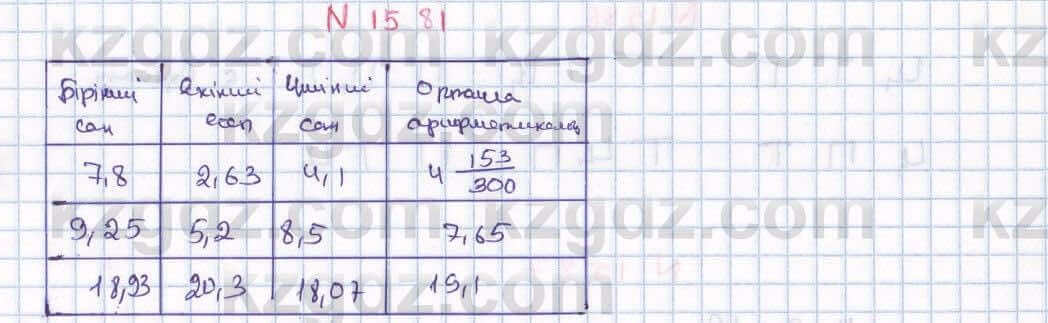 N 1581
Бірінші сан Екінші есеп Үшінші сан Орташа арифметикалық
7,8 2,63 4,1 4 153/300
9,25 5,2 8,5 7,65
18,93 20,3 18,07 19,1
kzgdz.com kzgdz.com kz
kzgdz.com kzgdz.com kz
kzgdz.com kzgdz.com kz